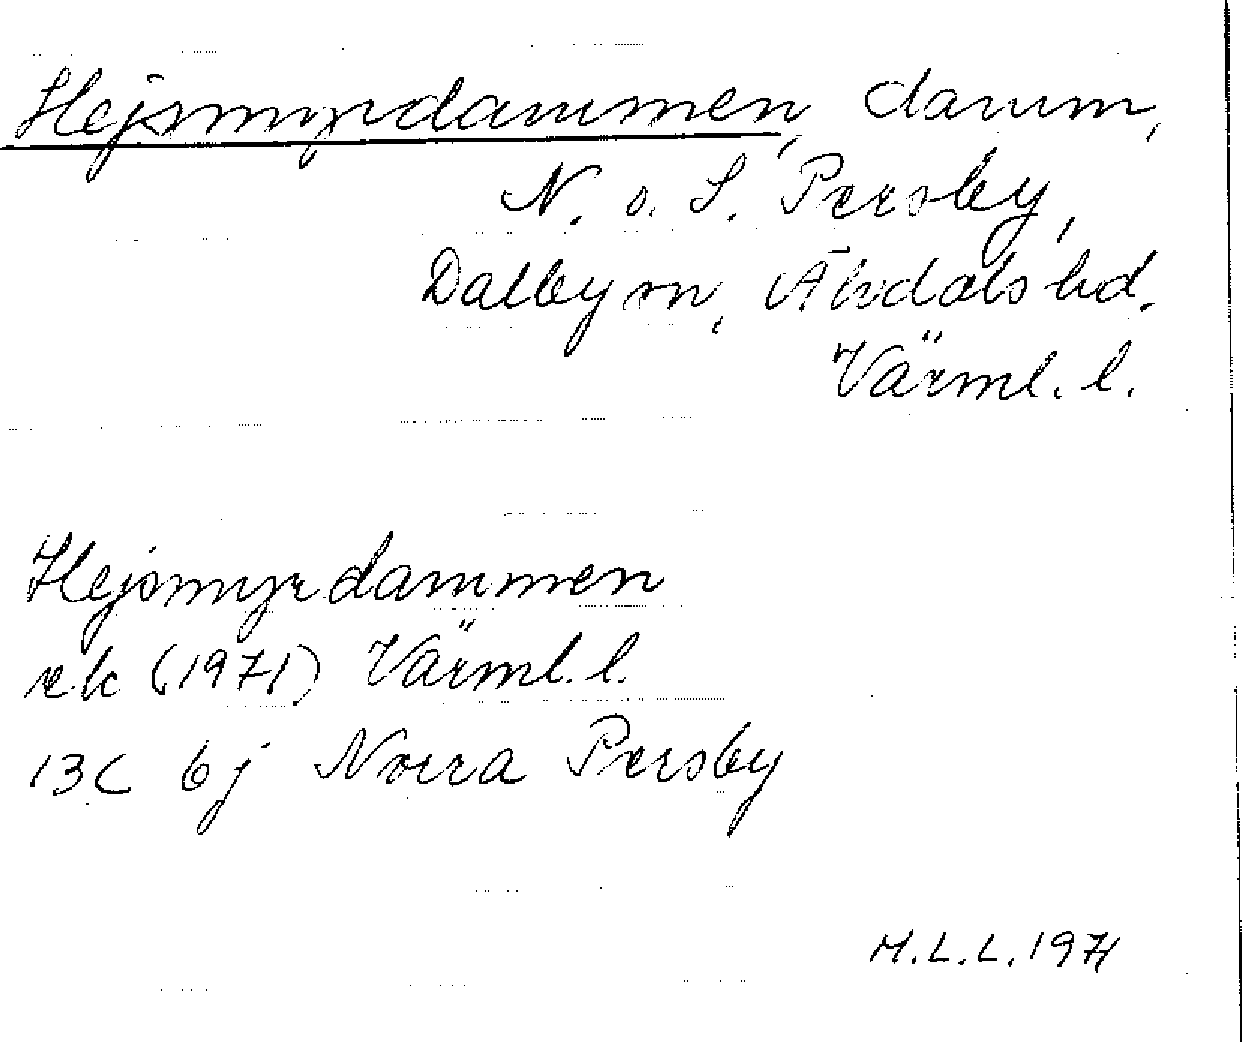 Hejsmyrdammen, damm,
N. o. S. Persby,
Dalby sn, Älvdals hd.
Värml. l.
Hejsmyrdammen
ek (1971) Värml. l.
13C 6j Norra Persby
M.L.L. 1971